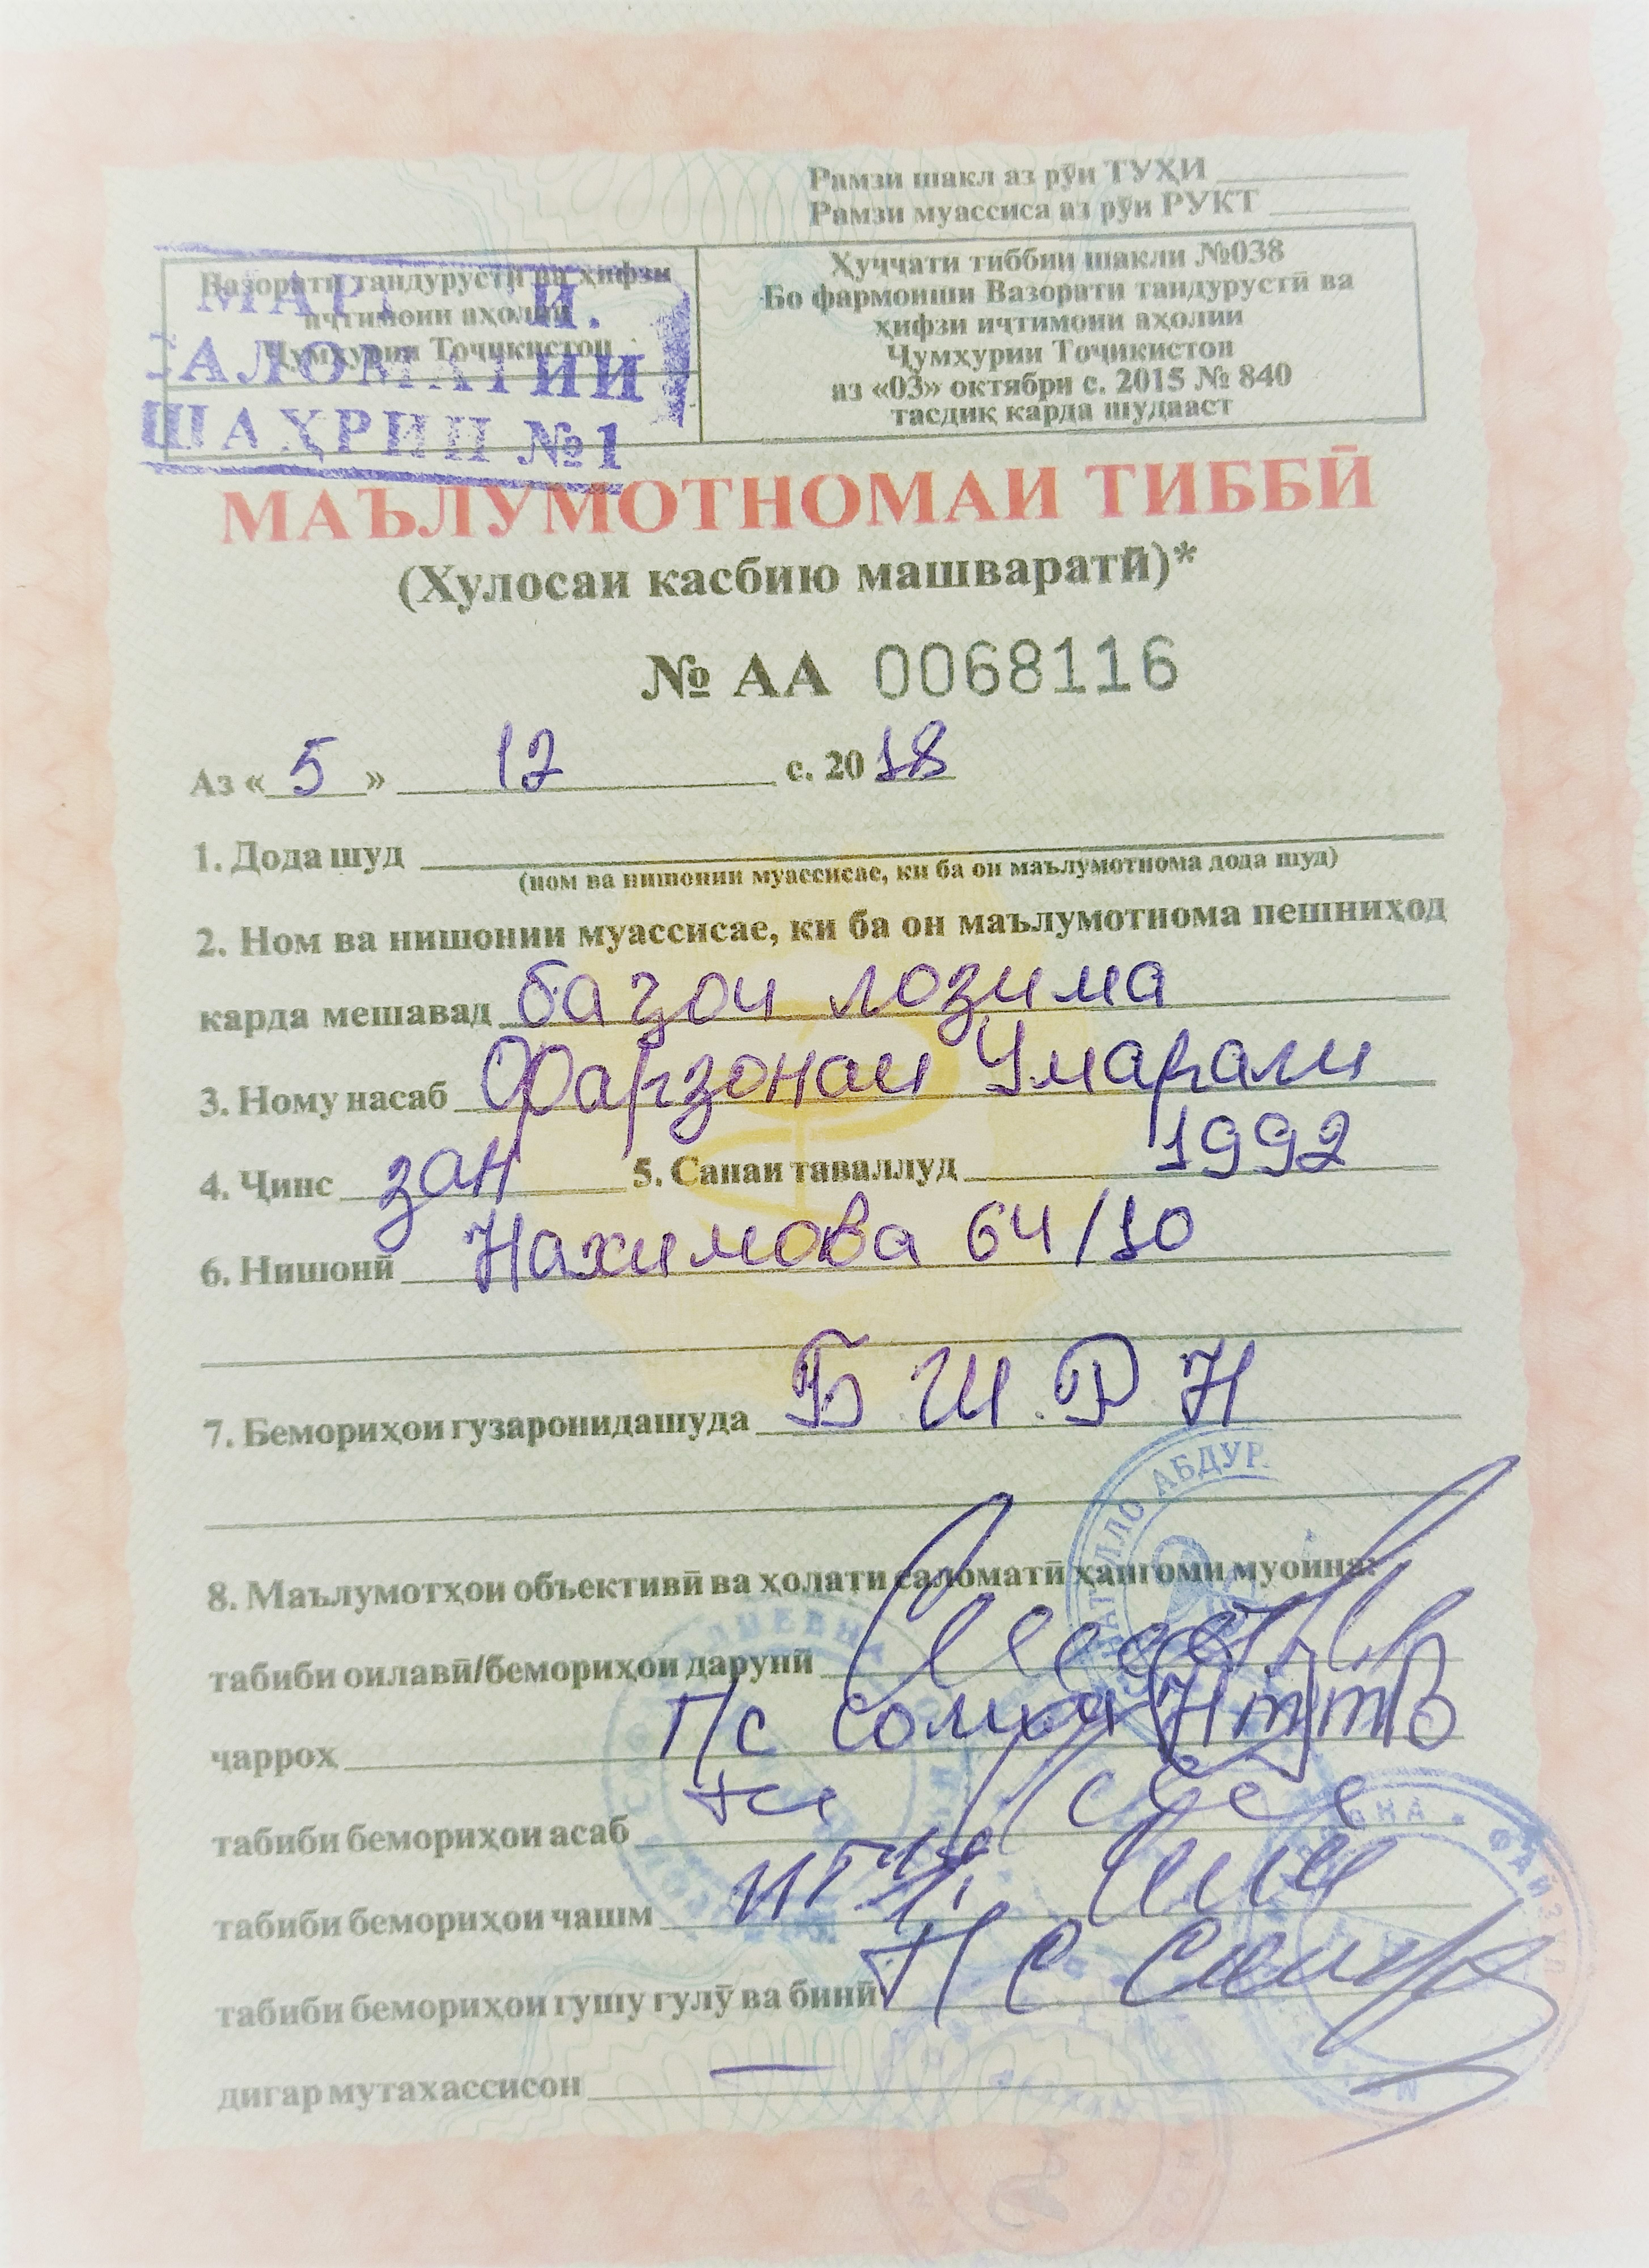 Рамзи шакл аз рӯи ТУҲИ
Рамзи муассиса аз рӯи РУКТ
Вазорати тандурустӣ ва ҳифзи
иҷтимоии аҳолии
Ҷумҳурии Тоҷикистон
САЛОМАТИИ
ШАҲРИИ №1
Ҳуҷҷати тиббии шакли №038
Бо фармоиши Вазорати тандурустӣ ва
ҳифзи иҷтимоии аҳолии
Ҷумҳурии Тоҷикистон
аз «03» октябри с. 2015 № 840
тасдиқ карда шудааст
МАЪЛУМОТНОМАИ ТИББӢ
(Хулосаи касбию машваратӣ)*
№ АА 0068116
Аз « 5 » 12 с. 2018
1. Дода шуд
(ном ва нишонии муассисае, ки ба он маълумотнома дода шуд)
2. Ном ва нишонии муассисае, ки ба он маълумотнома пешниҳод
карда мешавад ба ҷои лозима
3. Ному насаб Фарзонаи Умарали
4. Ҷинс зан 5. Санаи таваллуд 1992
6. Нишонӣ Нахимова 64/10
7. Бемориҳои гузаронидашуда Б.Ш.Р.Н
АБДУР
8. Маълумотҳои объективӣ ва ҳолати саломатӣ ҳангоми муоина:
табиби оилавӣ/бемориҳои дарунӣ
ҷарроҳ П/с солим
табиби бемориҳои асаб
табиби бемориҳои чашм
табиби бемориҳои гушу гулӯ ва бинӣ
дигар мутахассисон —